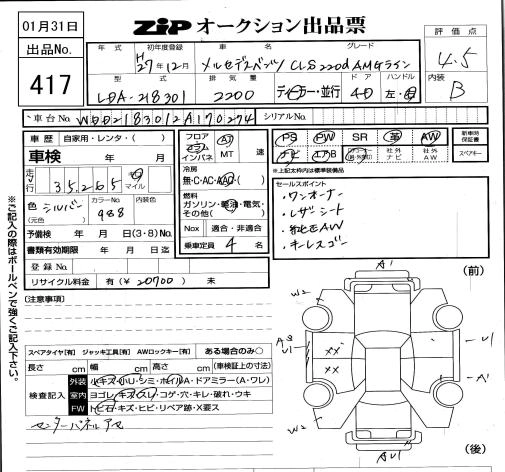 01月31日
ZIP オークション出品票
評価点
4.5
内装
B
出品No.
417
年式 初年度登録 車名 グレード
H27年12月 メルセデスベンツ CLS220d AMGライン
型式 排気量 ドア ハンドル
LDA-218301 2200 ディーラー・並行 4D 左・右
車台No. WDD2183012A170274 シリアルNo.
車歴 自家用・レンタ・( )
車検 年 月
走行 35,265 km マイル
色(元色) シルバー カラーNo. 988 内装色
予備検 年 月 日(3・8)No.
書類有効期限 年 月 日迄
登録No.
リサイクル料金 有(¥20700) 未
フロア
コラム
インパネ
AT
MT 速
冷房
無・C・AC・AAC
燃料
ガソリン・軽油・電気・
その他( )
Nox 適合・非適合
乗車定員 4 名
PS PW SR 革 AW
エアB 社外ナビ 社外AW
新車時保証書
スペアキー
※上記太枠内は標準装備品
セールスポイント
・ワンオーナー
・レザーシート
・純正AW
・キーレスゴー
※ご記入の際はボールペンで強くご記入下さい。
(注意事項)
スペアタイヤ[有] ジャッキ工具[有] AWロックキー[有] ある場合のみ○
長さ cm 幅 cm 高さ cm (車検証上の寸法)
検査記入
外装 小キズ・小ヘコ・シミ・ホイルA・ドアミラー(A・ワレ)
室内 ヨゴレ・キズ・スレ・コゲ・穴・キレ・破れ・ウキ
FW トビ石・キズ・ヒビ・リペア跡・X要ス
センターパネルアセ
(前)
A1
W2
U1
XX
XX
A1
W2
AU1
(後)